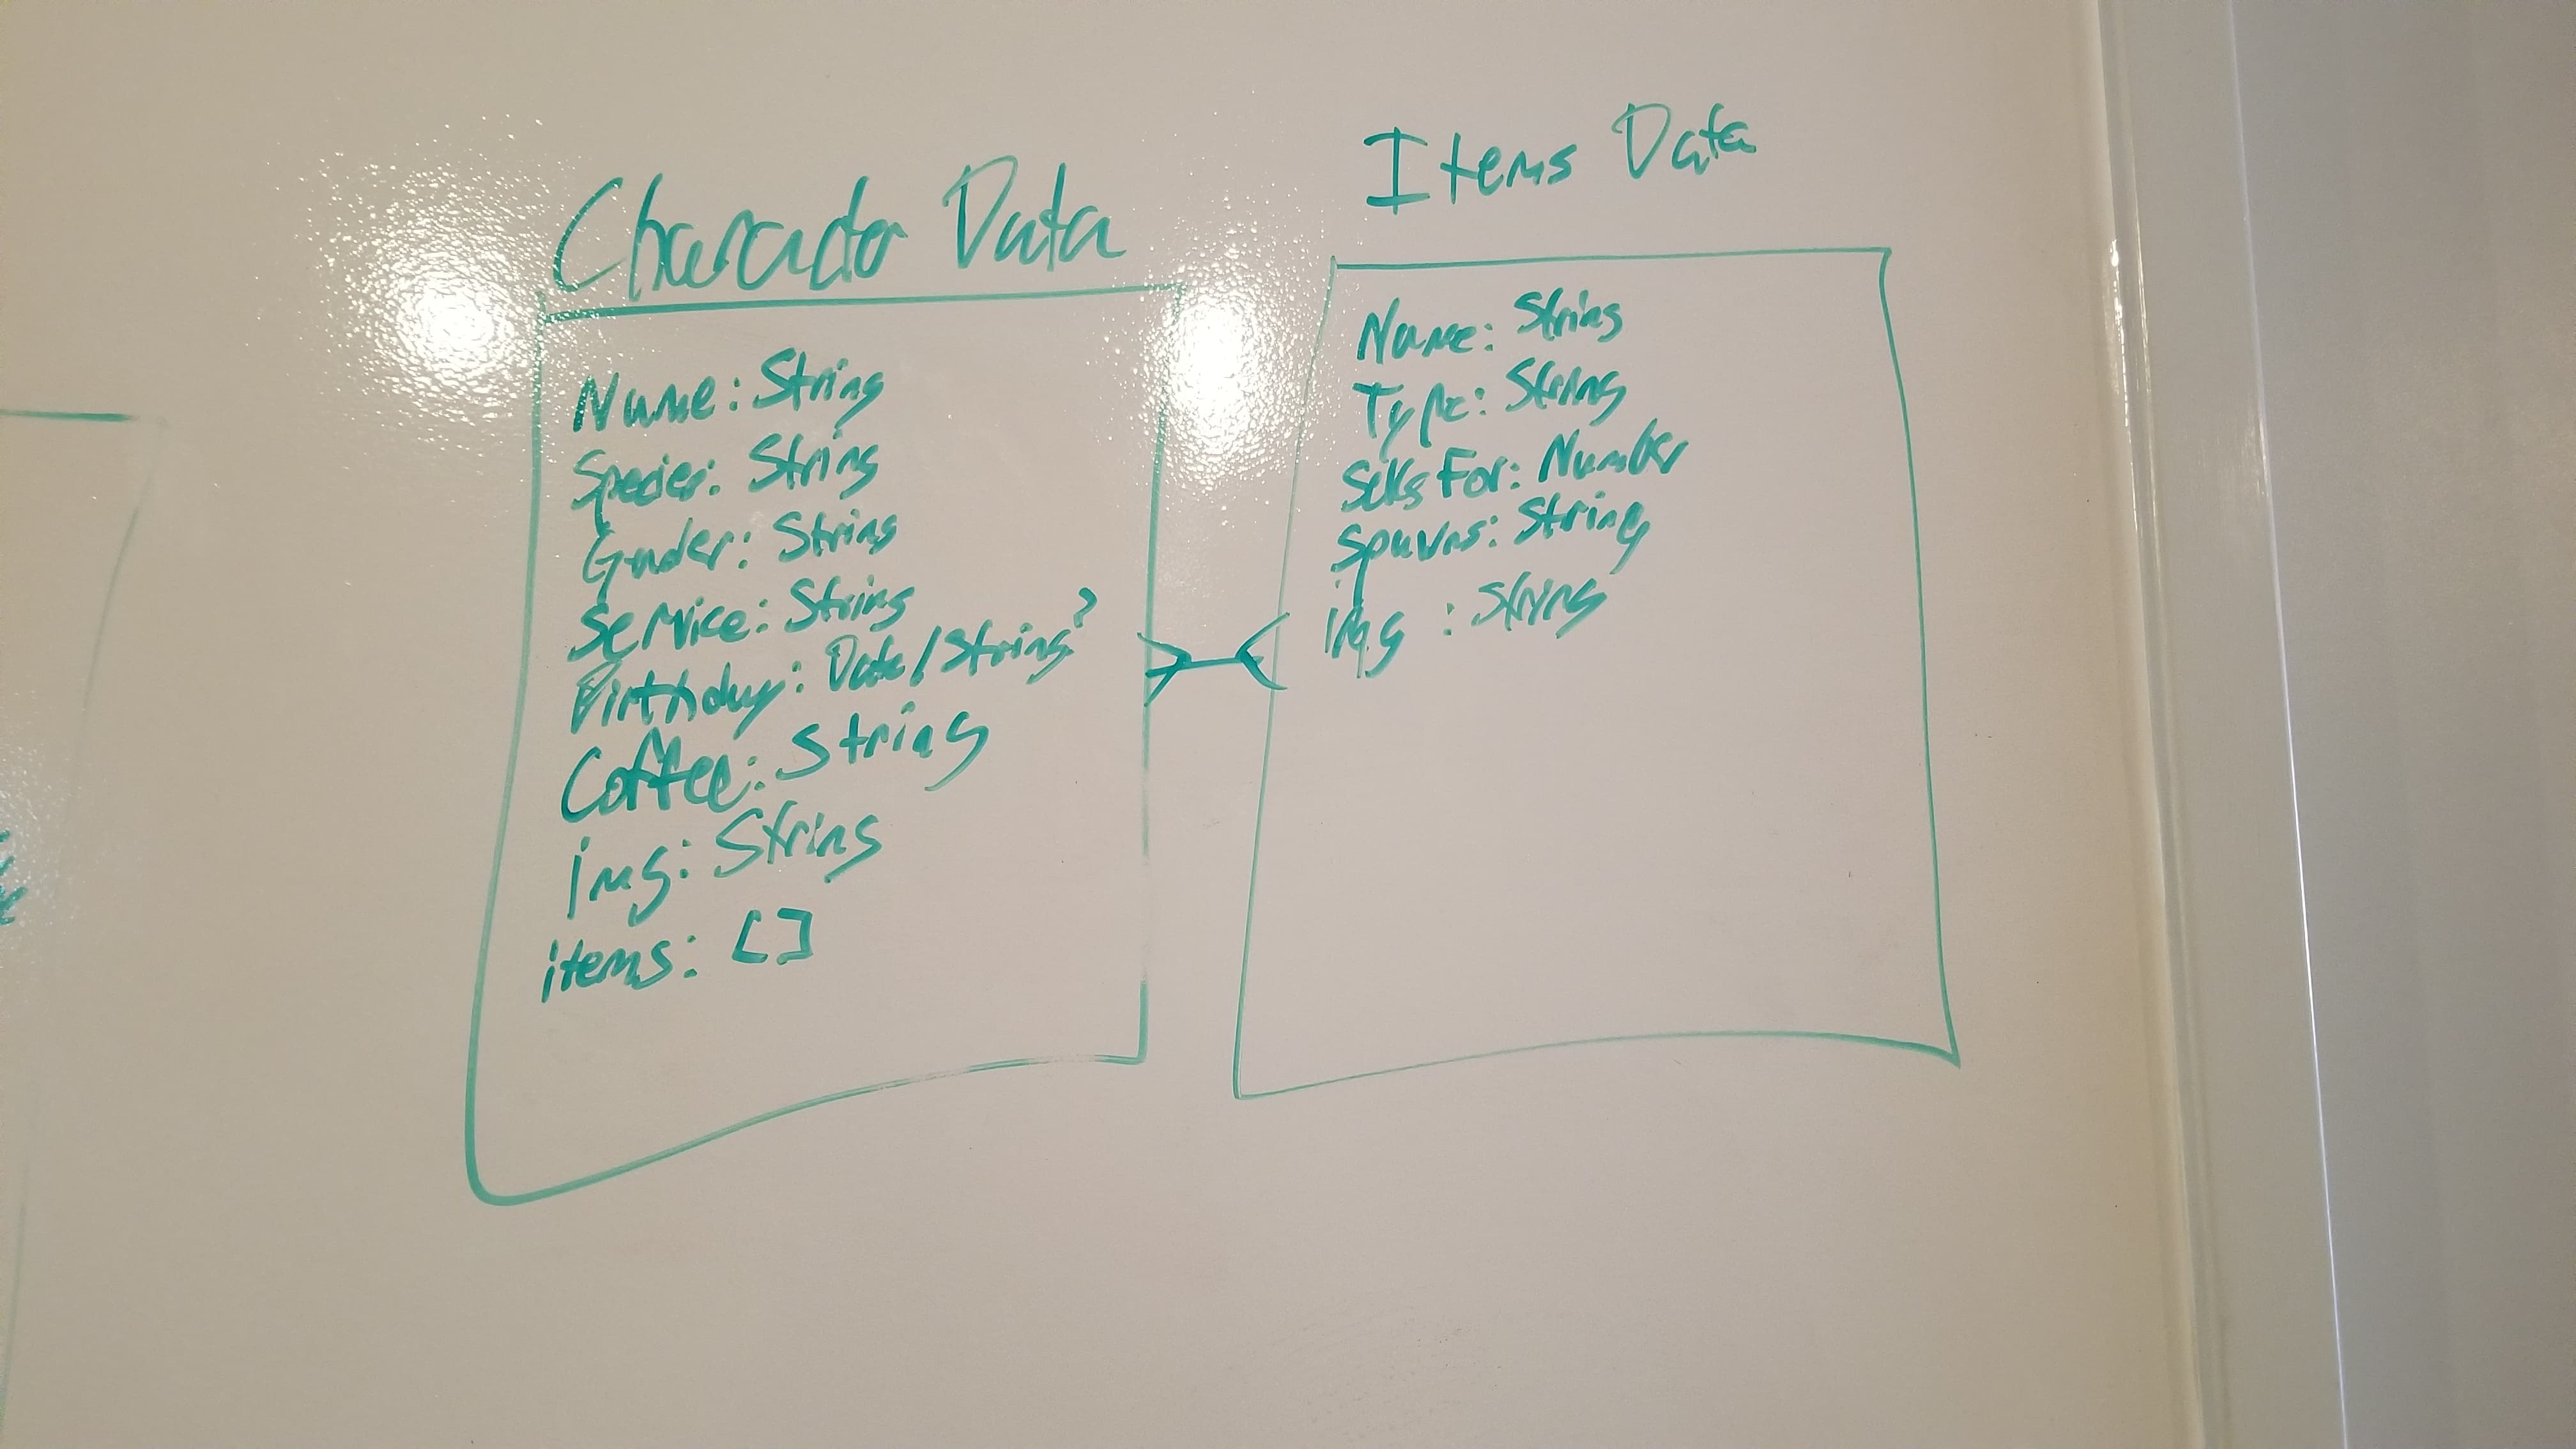 Character Data
Name: String
Species: String
Gender: String
Service: String
Birthday: Date/String?
Coffee: String
img: String
items: []
Items Data
Name: String
Type: String
Sells For: Number
Spawns: String
img: String